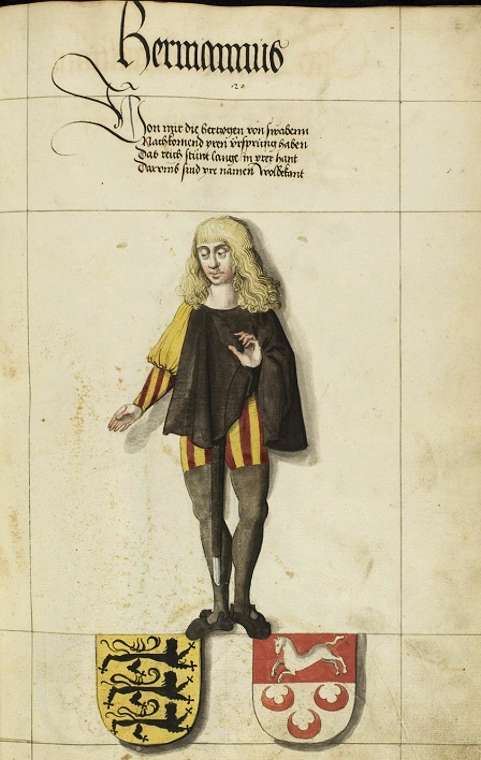 Hermannus
·20·
Von mir die hertzogen von swabenn
Nachkomend yren ursprung haben
Das reich stünt lange in yrer hant
Darumb sind yre namen wolbekant